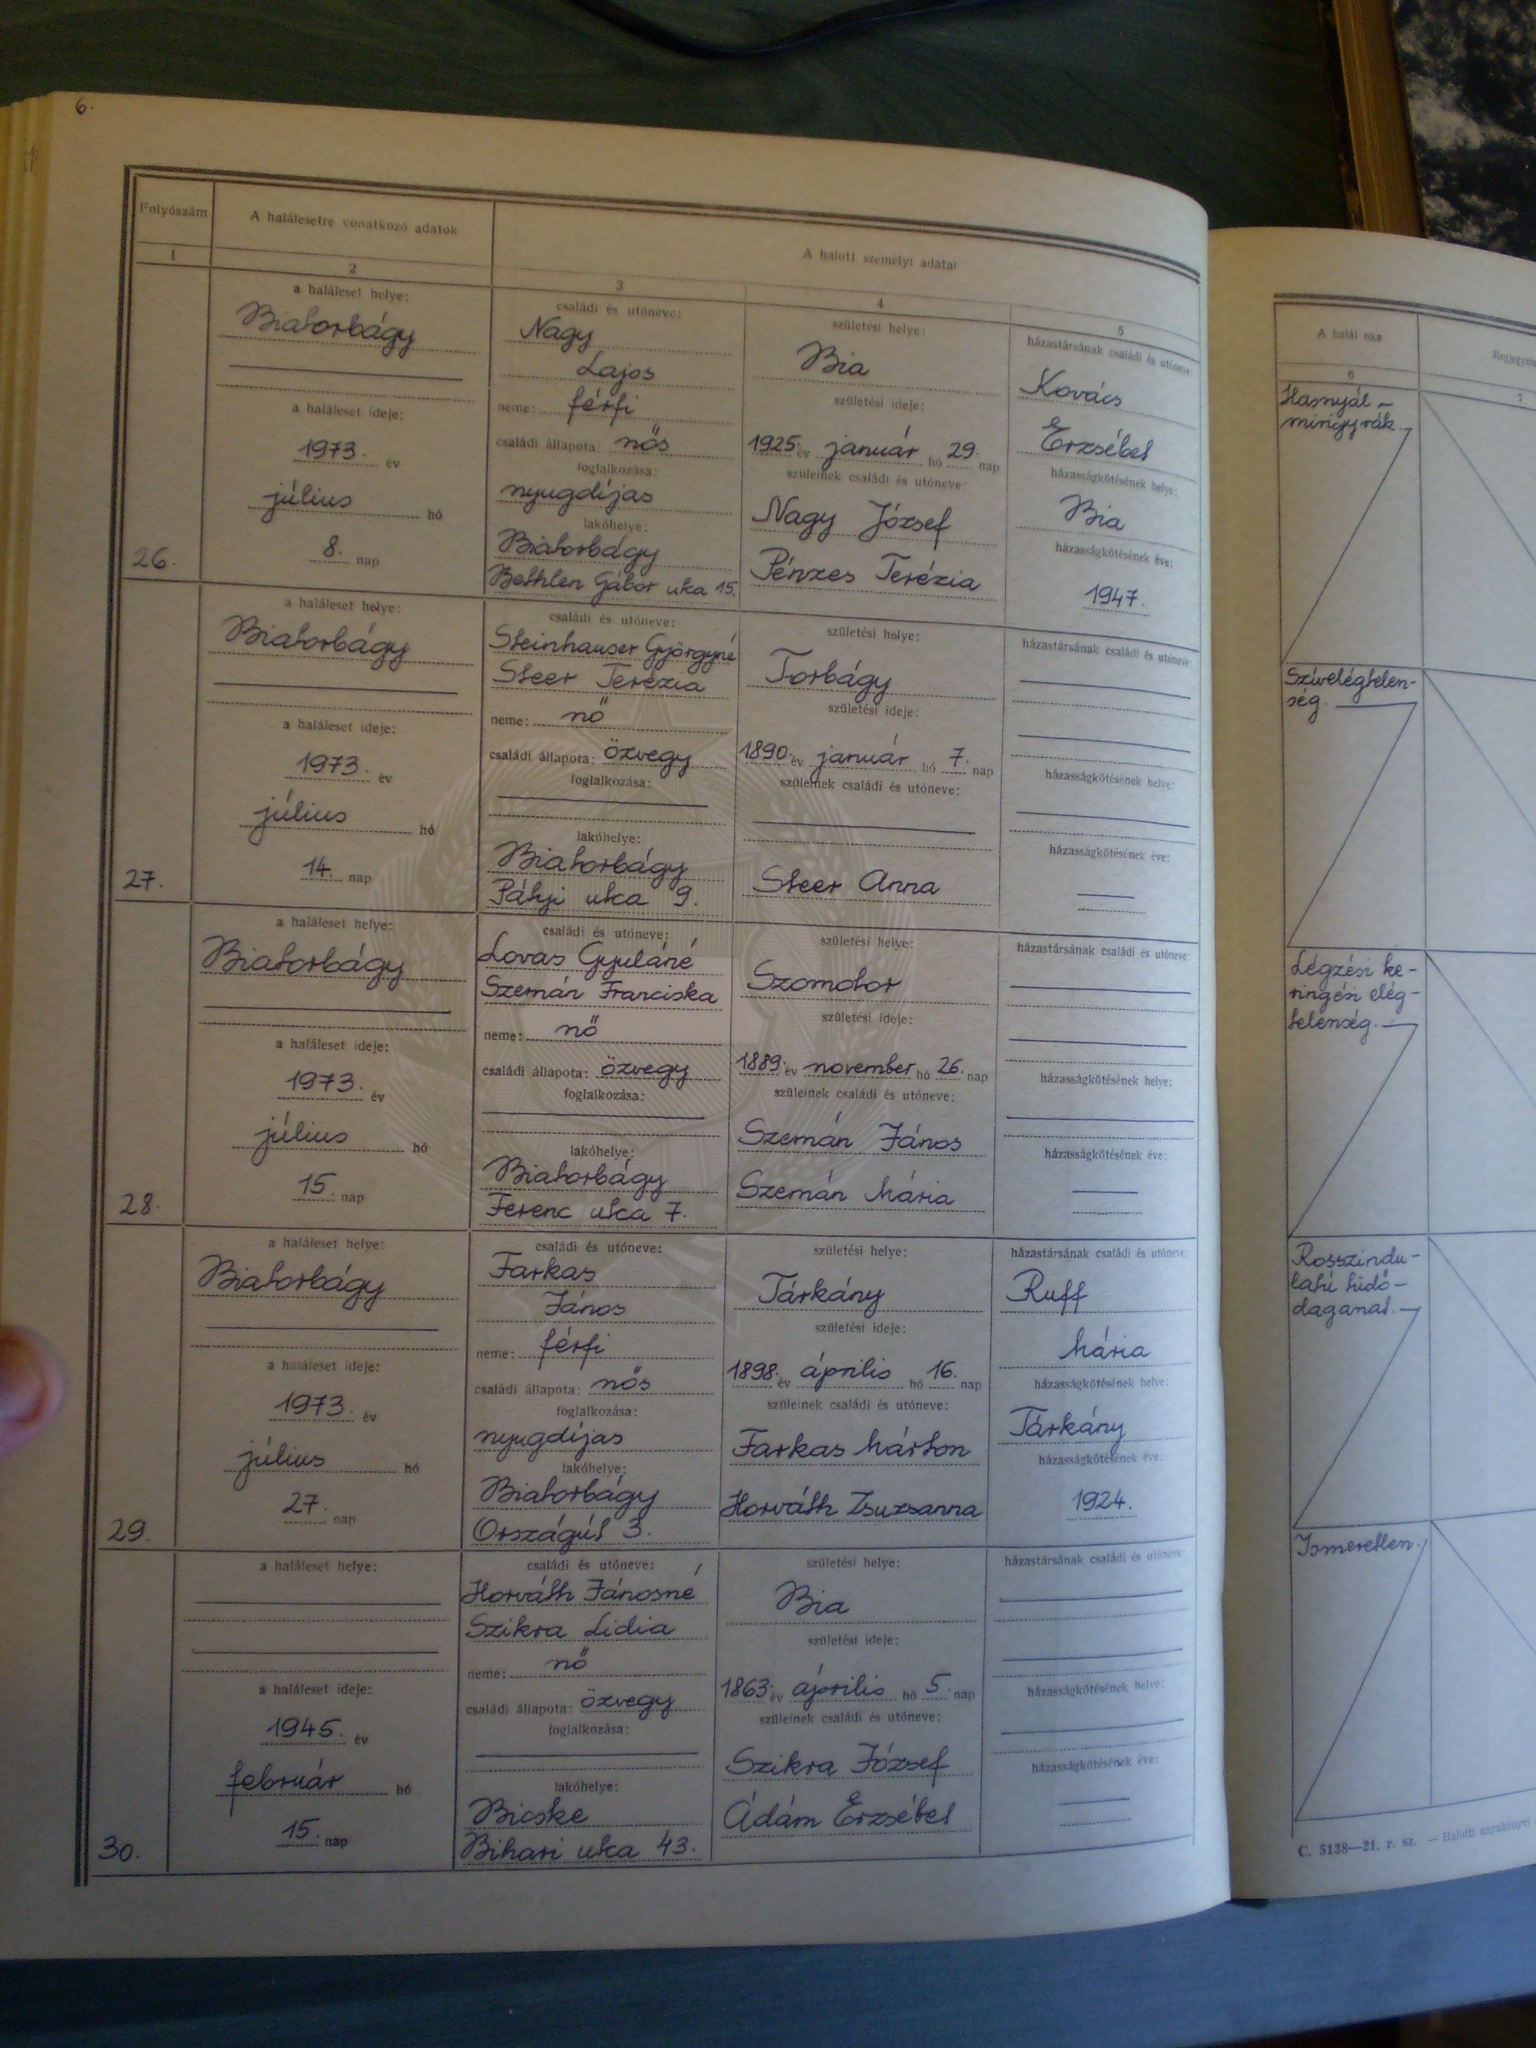 6.
Folyószám
A halálesetre vonatkozó adatok
A halott személyi adatai
1
2
3
4
5
a haláleset helye:
Biatorbágy
a haláleset ideje:
1973. év
július hó
8. nap
26.
családi és utóneve:
Nagy
Lajos
neme: férfi
családi állapota: nős
foglalkozása:
nyugdíjas
lakóhelye:
Biatorbágy
Bethlen Gábor utca 15.
születési helye:
Bia
születési ideje:
1925. év január hó 29. nap
szüleinek családi és utóneve:
Nagy József
Pénzes Terézia
házastársának családi és utóneve:
Kovács
Erzsébet
házasságkötésének helye:
Bia
házasságkötésének éve:
1947.
a haláleset helye:
Biatorbágy
a haláleset ideje:
1973. év
július hó
14. nap
27.
családi és utóneve:
Steinhauser Györgyné
Steer Terézia
neme: nő
családi állapota: özvegy
foglalkozása:
lakóhelye:
Biatorbágy
Pátyi utca 9.
születési helye:
Torbágy
születési ideje:
1890. év január hó 7. nap
szüleinek családi és utóneve:
Steer Anna
házastársának családi és utóneve:
házasságkötésének helye:
házasságkötésének éve:
a haláleset helye:
Biatorbágy
a haláleset ideje:
1973. év
július hó
15. nap
28.
családi és utóneve:
Lovas Gyuláné
Szemán Franciska
neme: nő
családi állapota: özvegy
foglalkozása:
lakóhelye:
Biatorbágy
Ferenc utca 7.
születési helye:
Szomotor
születési ideje:
1889. év november hó 26. nap
szüleinek családi és utóneve:
Szemán János
Szemán Mária
házastársának családi és utóneve:
házasságkötésének helye:
házasságkötésének éve:
a haláleset helye:
Biatorbágy
a haláleset ideje:
1973. év
július hó
27. nap
29.
családi és utóneve:
Farkas
János
neme: férfi
családi állapota: nős
foglalkozása:
nyugdíjas
lakóhelye:
Biatorbágy
Országút 3.
születési helye:
Tárkány
születési ideje:
1898. év április hó 16. nap
szüleinek családi és utóneve:
Farkas Márton
Horváth Zsuzsanna
házastársának családi és utóneve:
Ruff
Mária
házasságkötésének helye:
Tárkány
házasságkötésének éve:
1924.
a haláleset helye:
a haláleset ideje:
1945. év
február hó
15. nap
30.
családi és utóneve:
Horváth Jánosné
Szikra Lidia
neme: nő
családi állapota: özvegy
foglalkozása:
lakóhelye:
Bicske
Bihari utca 43.
születési helye:
Bia
születési ideje:
1863. év április hó 5. nap
szüleinek családi és utóneve:
Szikra József
Ádám Erzsébet
házastársának családi és utóneve
házasságkötésének helye:
házasságkötésének éve:
A halál oka
6
7
Hasnyál-
mirigyrák.
Szívelégtelen-
ség.
Légzési ke-
ringési elég-
telenség.
Rosszindu-
latú tüdő-
daganat.
Ismeretlen.
C. 5138—21. r. sz. — Halotti anyakönyvi